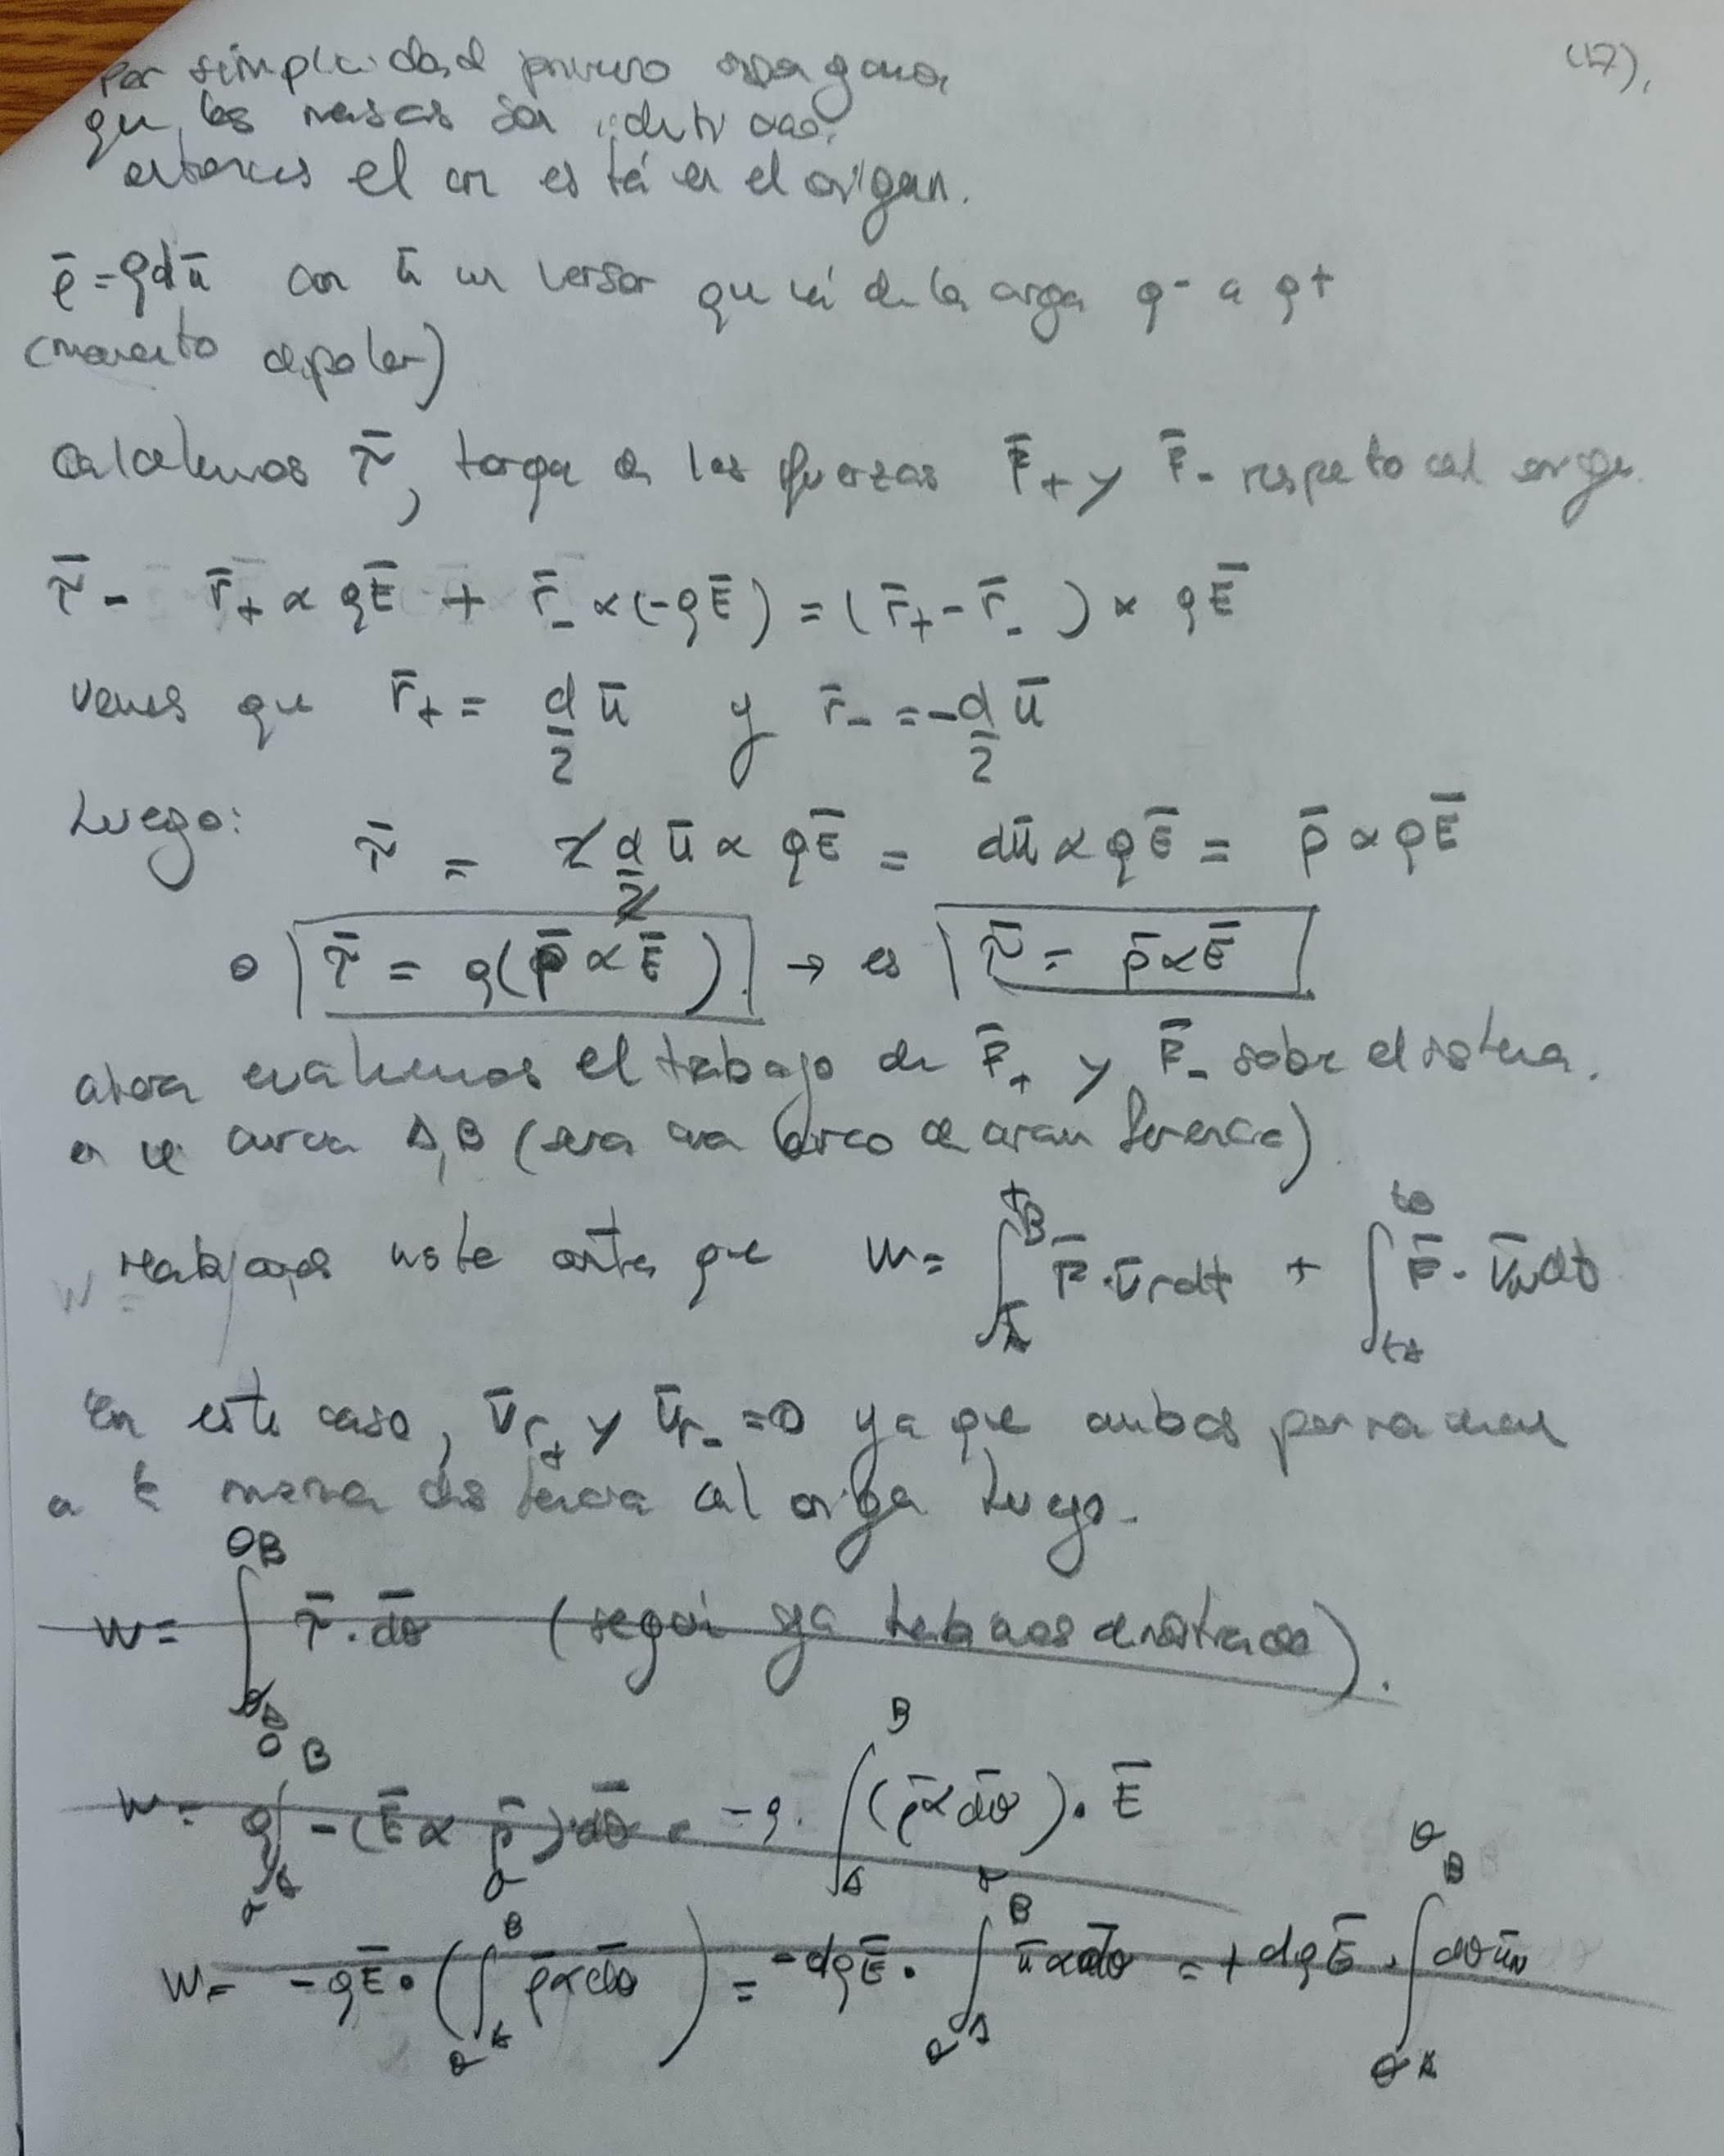 (17).
Por simplicidad primero supongamos
que las masas son identicas.
entonces el cm está en el origen.
p̄ = qdū con ū un versor que vá de la carga q- a q+
(momento dipolar)
Calculemos τ̄, torque de las fuerzas F̄+ y F̄- respecto al origen.
τ̄ = r̄+ × qĒ + r̄- × (-qĒ) = (r̄+ - r̄-) × qĒ
vemos que r̄+ = d/2 ū y r̄- = -d/2 ū
Luego: τ̄ = 2 d/2 ū × qĒ = dū × qĒ = p̄ × qĒ
o τ̄ = q(p̄ × Ē) → es τ̄ = p̄ × Ē
ahora evaluemos el trabajo de F̄+ y F̄- sobre el sistema.
en la curva A,B (será un arco de circunferencia)
W = ∫_{tA}^{tB} F̄ · v̄r dt + ∫_{tA}^{tB} F̄ · v̄n dt
En este caso, v̄r+ y v̄r- = 0 ya que ambos permanecen
a la misma distancia al origen Luego.
W = ∫_{θA}^{θB} τ̄ · dθ̄ (según ya habíamos demostrado).
W = q∫_{θA}^{θB} -(Ē × p̄) · dθ̄ = -q · ∫_{A}^{B} (p̄ × dθ̄) · Ē
W = -qĒ · (∫_{θA}^{θB} p̄ × dθ̄) = -dqĒ · ∫_{θA}^{θB} ū × dθ̄ = + dqĒ · ∫_{θA}^{θB} dθ ūn